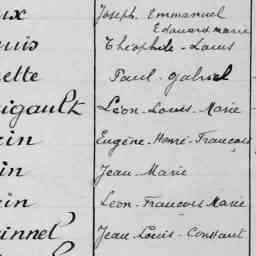 ux Joseph Emmanuel
Edouard Marie
uis Théophile-Louis
ette Paul-Gabriel
igault Léon-Louis-Marie
in Eugène-Henri-François
in Jean-Marie
in Léon-François Marie
innel Jean-Louis-Constant